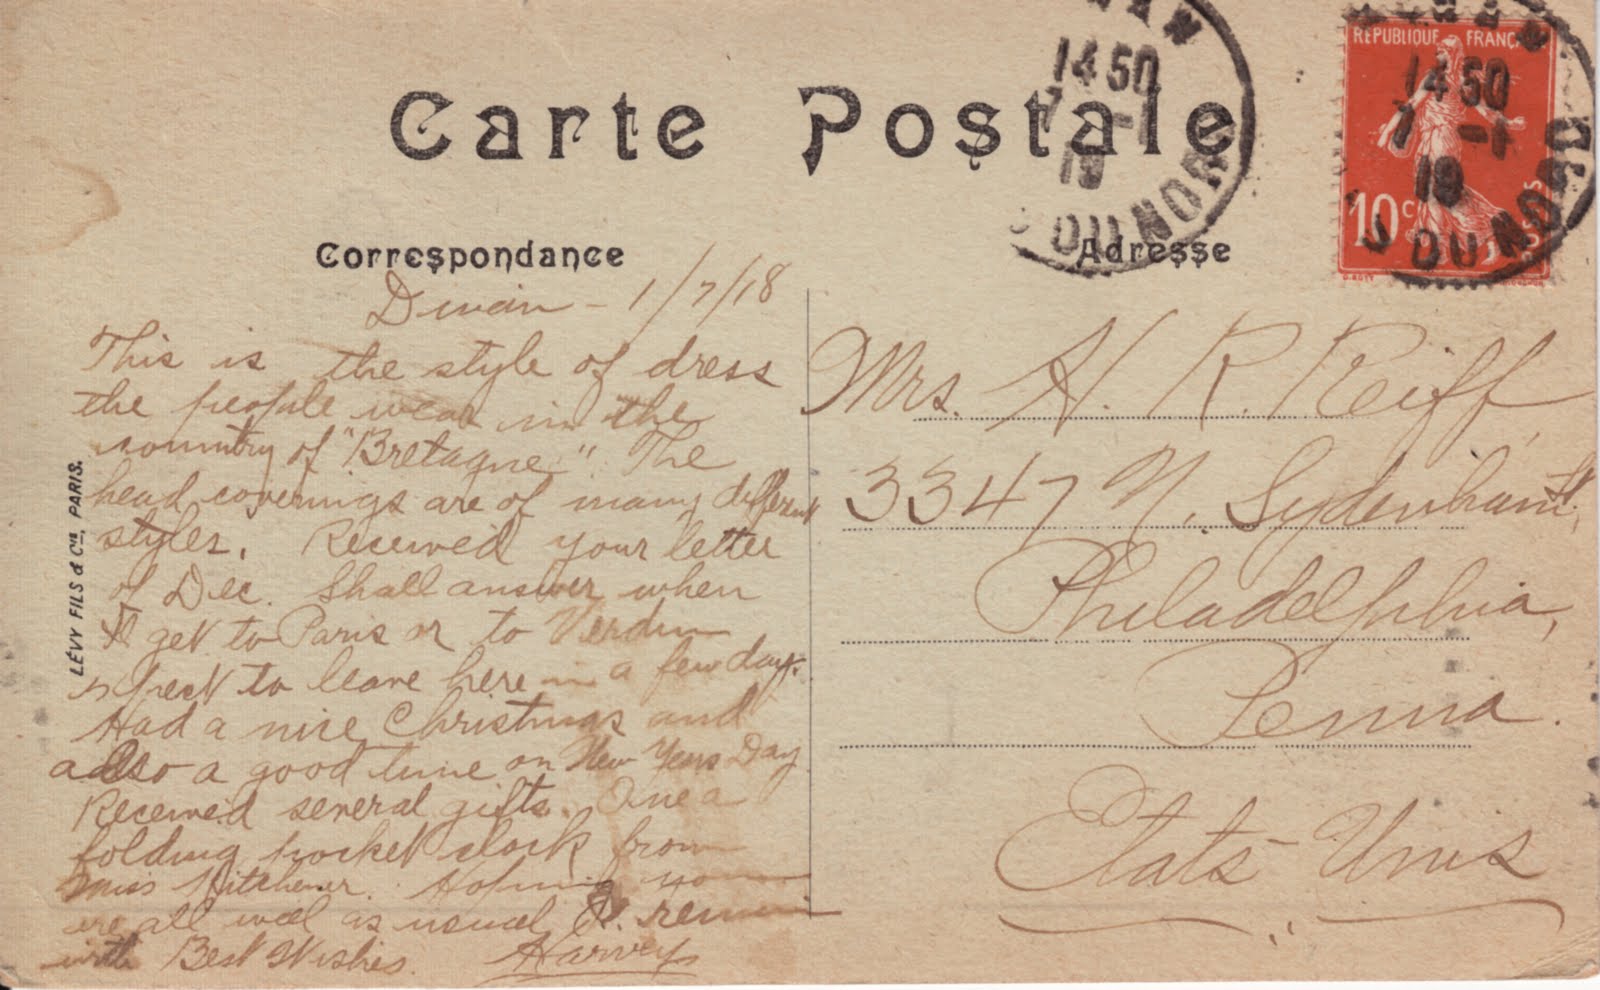 Carte Postale
Correspondance
Adresse
14 50
7 -1
19
DU NORD
REPUBLIQUE FRANÇ
14 50
7 -1
19
10 c
DU NORD
POSTES
LÉVY FILS & Cie, PARIS.
1/7/18
This is the style of dress
the people wear in the
country of "Bretagne". The
head coverings are of many different
styles. Received your letter
of Dec. Shall answer when
I get to Paris or to Verdun
expect to leave here in a few days.
Had a nice Christmas and
also a good time on New Years Day
Received several gifts. One a
folding pocket clock from
Miss Kitchener. Hoping you
are all well as usual I remain
with Best Wishes. Harvey
Mrs. H. R. Reiff,
3347 N. Sydenham St,
Philadelphia,
Penna.
Etats-Unis